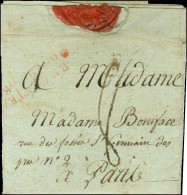 A Madame
Madame Boniface
rue des fossés St Germain des
prés N° 2
à Paris